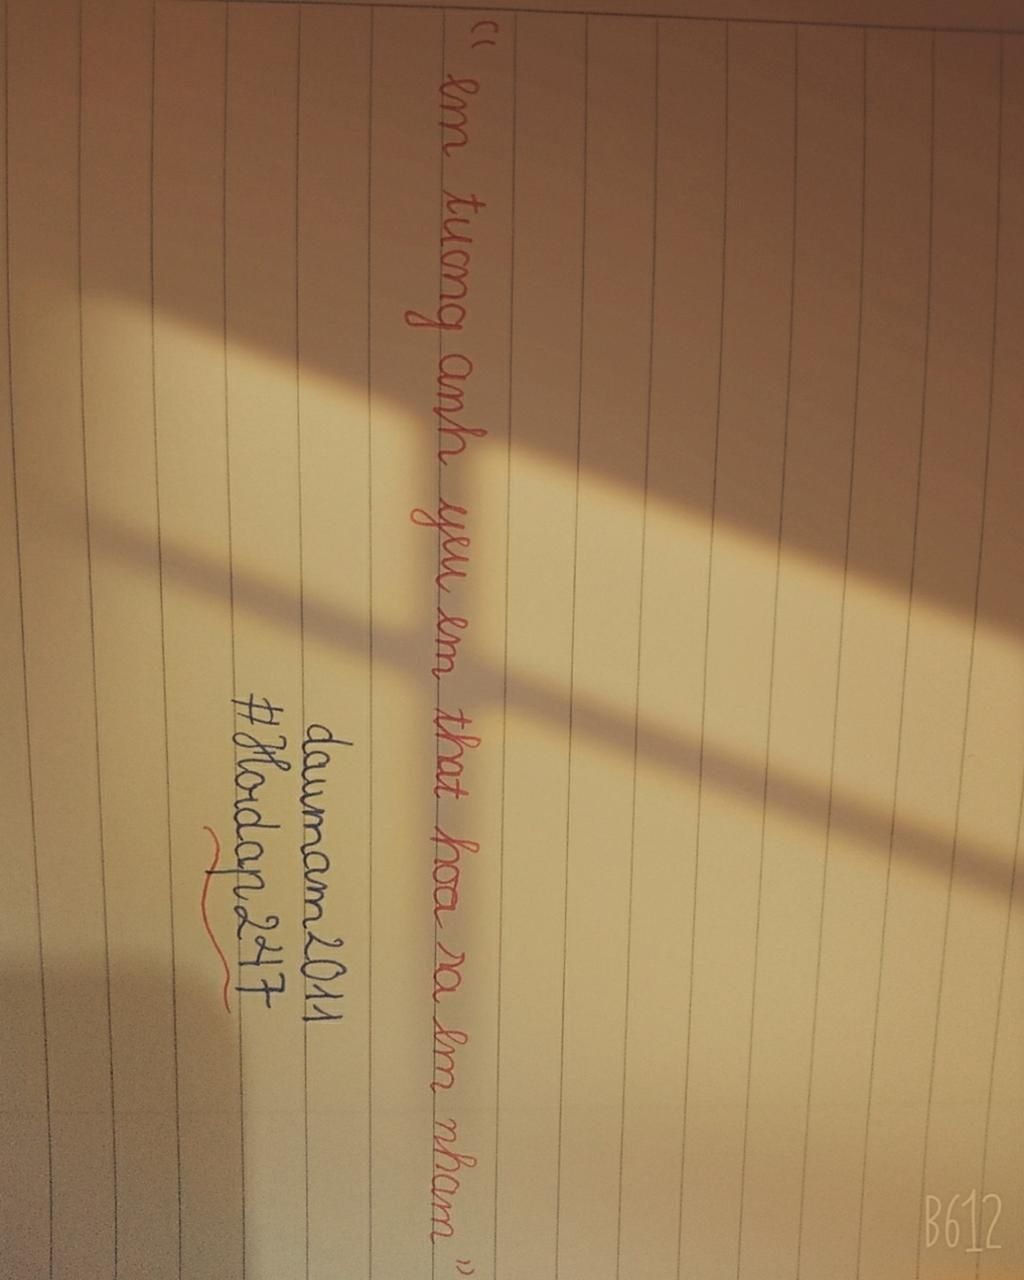 “ Em tuong anh yeu em that hoa ra em nham ”
daumam2011
#Hoidap247
B612